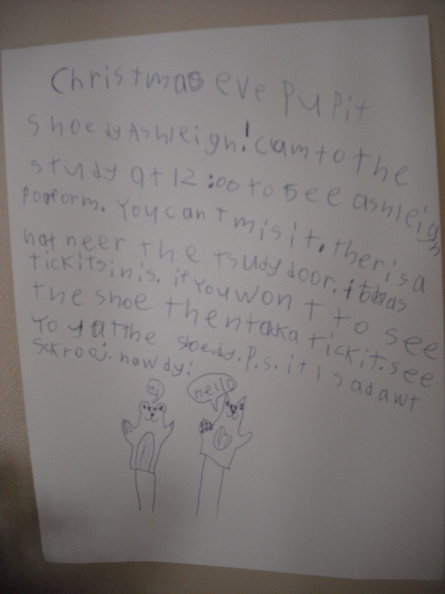 Christmas eve PuPit
Shoe dy Ashleigh! cam to the
study at 12:00 to see ashleigh
Pogform. You can t mis it. ther is a
hat neer the tsudy door. it has
tickits in is. if You won t to see
the shoe then taka tickit. see
Yo yatthe shoe.dy. P.s. it is adawt
Sckrooj. now dy!
Hi
Hello